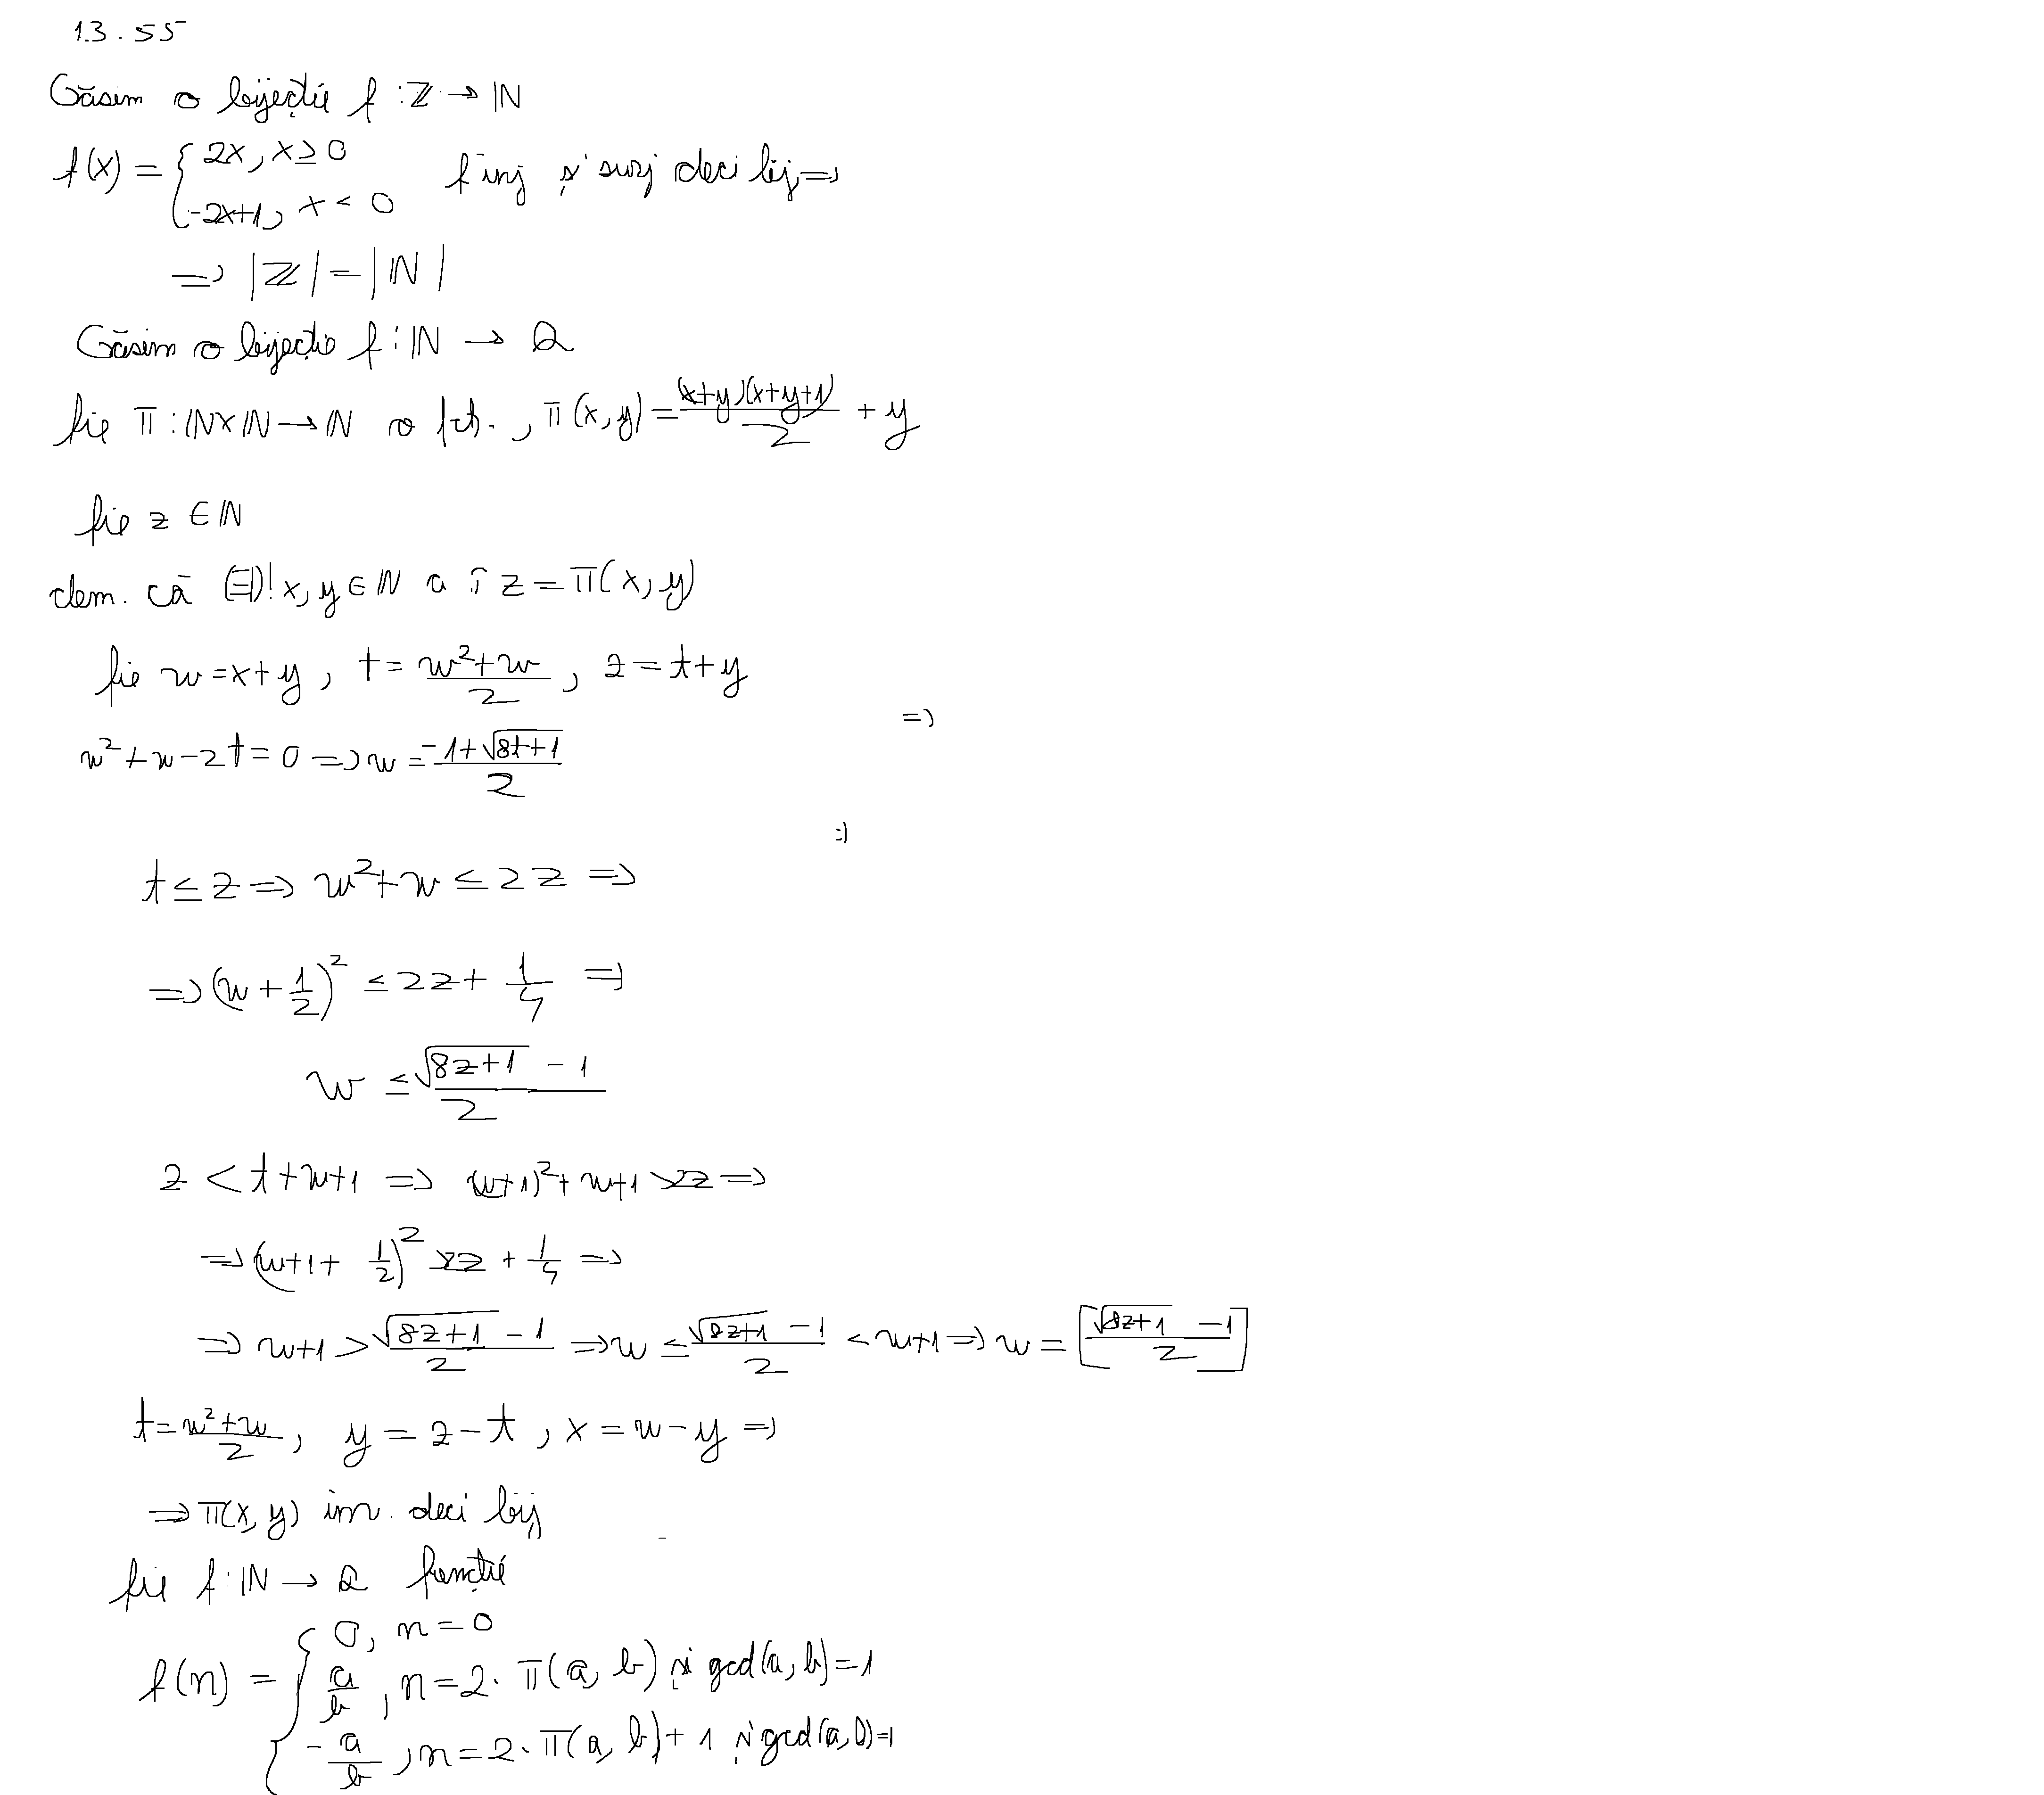 1.3.55
Găsim o bijecție f : ℤ → ℕ
f(x) = { 2x, x ≥ 0
-2x+1, x < 0 f inj și surj deci bij ⇒
⇒ |ℤ| = |ℕ|
Găsim o bijecție f : ℕ → Q
fie π : ℕ×ℕ → ℕ o fct. , π(x, y) = (x+y)(x+y+1)/2 + y
fie z ∈ ℕ
dem. că (∃)! x, y ∈ ℕ a î z = π(x, y)
fie w = x+y , t = (w²+w)/2 , z = t+y
⇒
w²+w-2t = 0 ⇒ w = (-1+√(8t+1))/2
⇒
t ≤ z ⇒ w²+w ≤ 2z ⇒
⇒ (w + 1/2)² ≤ 2z + 1/4 ⇒
w ≤ (√(8z+1) - 1)/2
z < t+w+1 ⇒ (w+1)²+w+1 > 2z ⇒
⇒ (w+1+ 1/2)² > 2z + 1/4 ⇒
⇒ w+1 > (√(8z+1) - 1)/2 ⇒ w ≤ (√(8z+1) - 1)/2 < w+1 ⇒ w = [(√(8z+1) - 1)/2]
t = (w²+w)/2 , y = z - t , x = w - y ⇒
⇒ π(x, y) inv. deci bij
fie f : ℕ → Q funcție
f(n) = { 0, n = 0
a/b , n = 2 · π(a, b) și gcd(a, b) = 1
- a/b , n = 2 · π(a, b) + 1 și gcd(a, b) = 1